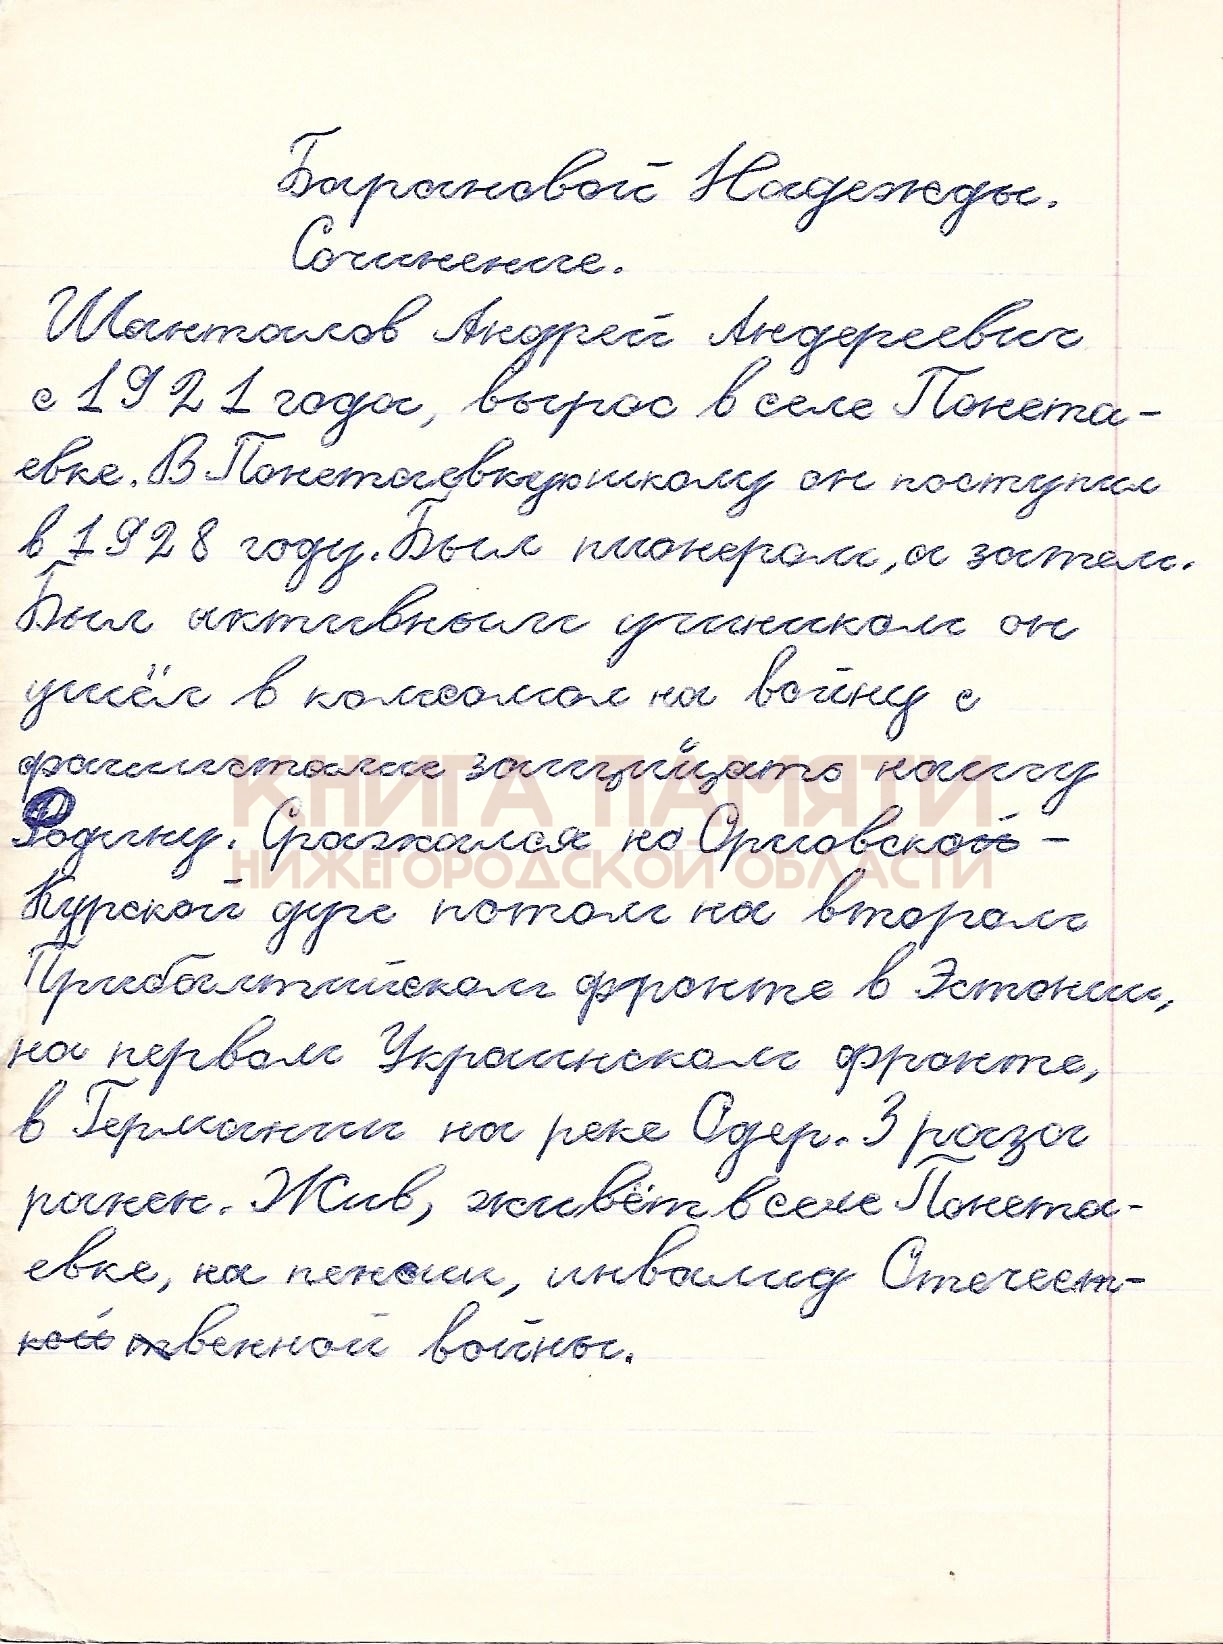 Барановой Надежды.
Сочинение.
Шанталов Андрей Андереевич
с 1921 года, вырос в селе Понета-
евке. В Понетаевкую школу он поступил
в 1928 году. Был пионером, а затем.
Был активным учиником он
ушёл в комсомол на войну с
фашистами защищать нашу
Родину. Сражался на Орловской -
Курской дуге потом на втором
Прибалтийском фронте в Эстонии,
на первом Украинском фронте,
в Германии на реке Одер. 3 раза
ранен. Жив, живёт в селе Понета-
евке, на пенсии, инвалид Отечест-
кой твенной войны.
КНИГА ПАМЯТИ
НИЖЕГОРОДСКОЙ ОБЛАСТИ